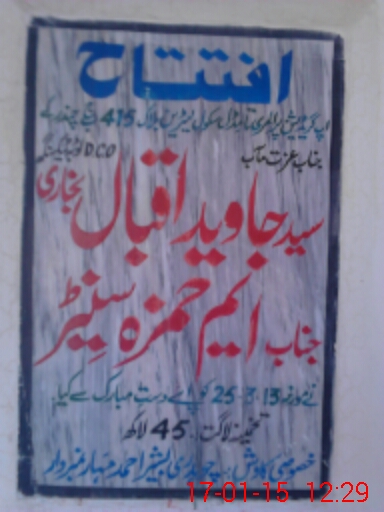 افتتاح
اپ گریڈیشن پرائمری تا مڈل سکول لیٹرین بلاک 415 ج ب چندر کے
جناب عزت مآب DCO ٹوبہ ٹیک سنگھ
سید جاوید اقبال بخاری
جناب ایم حمزہ سنیٹر
نے مورخہ 25-3-13 کو اپنے دست مبارک سے کیا۔
تخمینہ لاگت۔ 45 لاکھ
خصوصی کاوش :- چوہدری بشیر احمد نمبردار
17-01-15 12:29